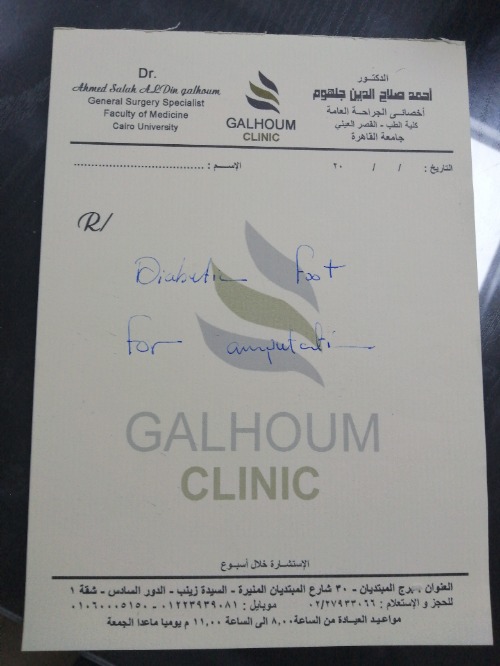 Dr.
Ahmed Salah ALDin galhoum
General Surgery Specialist
Faculty of Medicine
Cairo University
GALHOUM
CLINIC
الدكتور
أحمد صلاح الدين جلهوم
أخصائى الجراحة العامة
كلية الطب - القصر العينى
جامعة القاهرة
التاريخ : / / ٢٠ الاسم : ..................................
R/
Diabetic foot
for amputation
GALHOUM
CLINIC
الإستشارة خلال أسبوع
العنوان : برج المبتديان - ٣٠ شارع المبتديان المنيرة - السيدة زينب - الدور السادس - شقة ١
للحجز و الإستعلام : ٠٢/٢٧٩٣٣٠٦٦ موبايل : ٠١٢٢٣٩٣٩٠٨١ - ٠١٠٦٠٠٠٥١٥٠
مواعيد العيادة من الساعة ٨,٠٠ الى الساعة ١١,٠٠ م يوميا ماعدا الجمعة